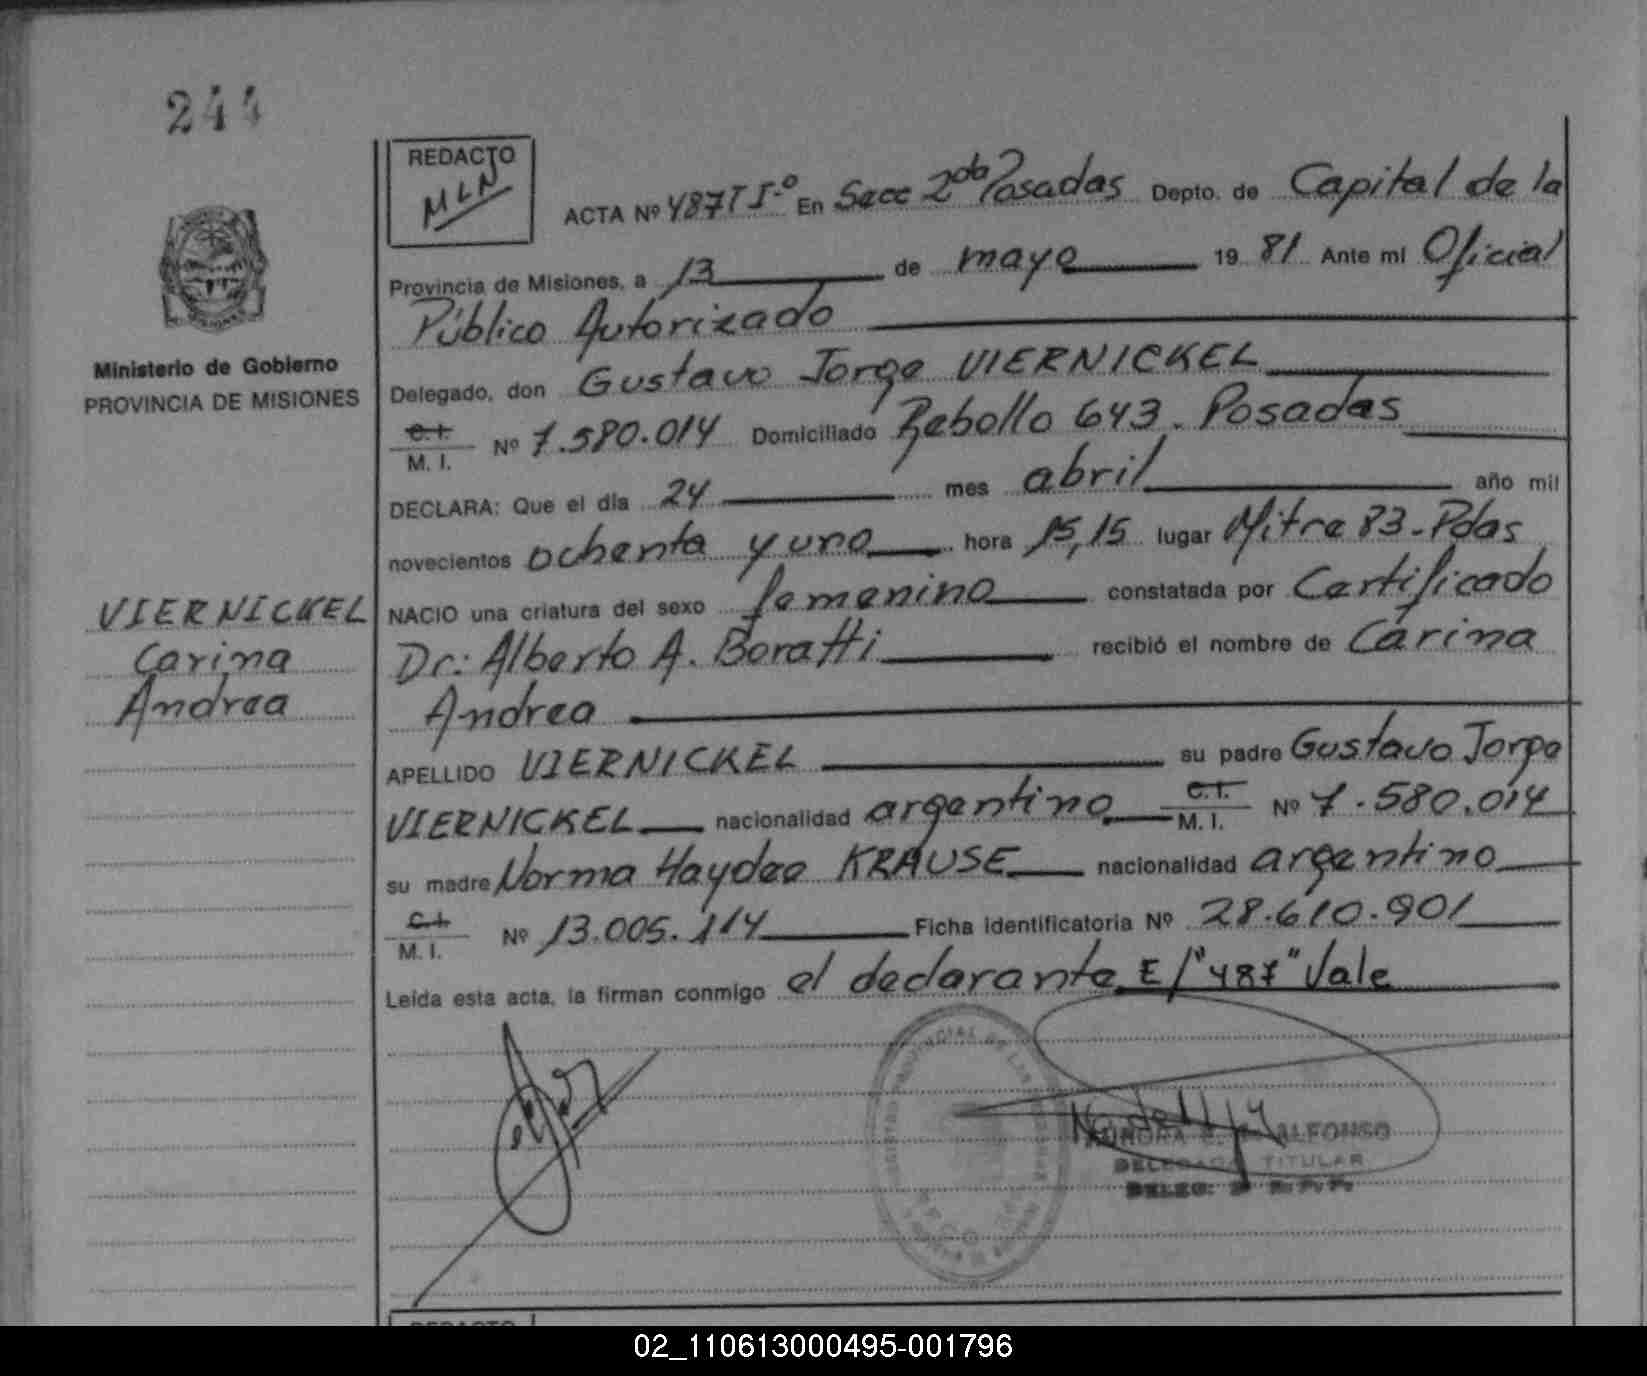 244
REDACTO
MLN
ACTA Nº 487 TIº En Secc 2da Posadas Depto. de Capital de la
Provincia de Misiones, a 13 de mayo 19 81 Ante mi Oficial
Público Autorizado
Ministerio de Gobierno
PROVINCIA DE MISIONES
Delegado, don Gustavo Jorge VIERNICKEL
C.I.
M. I. Nº 7.580.014 Domiciliado Rebollo 643. Posadas
DECLARA: Que el día 24 mes abril año mil
novecientos ochenta y uno hora 15,15 lugar Mitre 83-Pdas
NACIO una criatura del sexo femenino constatada por Certificado
Dr: Alberto A. Boratti recibió el nombre de Carina
Andrea
VIERNICKEL
Carina
Andrea
APELLIDO VIERNICKEL su padre Gustavo Jorge
VIERNICKEL nacionalidad argentino C.I. M. I. Nº 7.580.014
su madre Norma Haydee KRAUSE nacionalidad argentino
C.I.
M. I. Nº 13.005.114 Ficha identificatoria Nº 28.610.901
Leída esta acta, la firman conmigo el declarante E/"487" Vale
PROVINCIAL DE LAS PERSONAS
ALFONSO
DELEGADA TITULAR
REDACTO
02_110613000495-001796